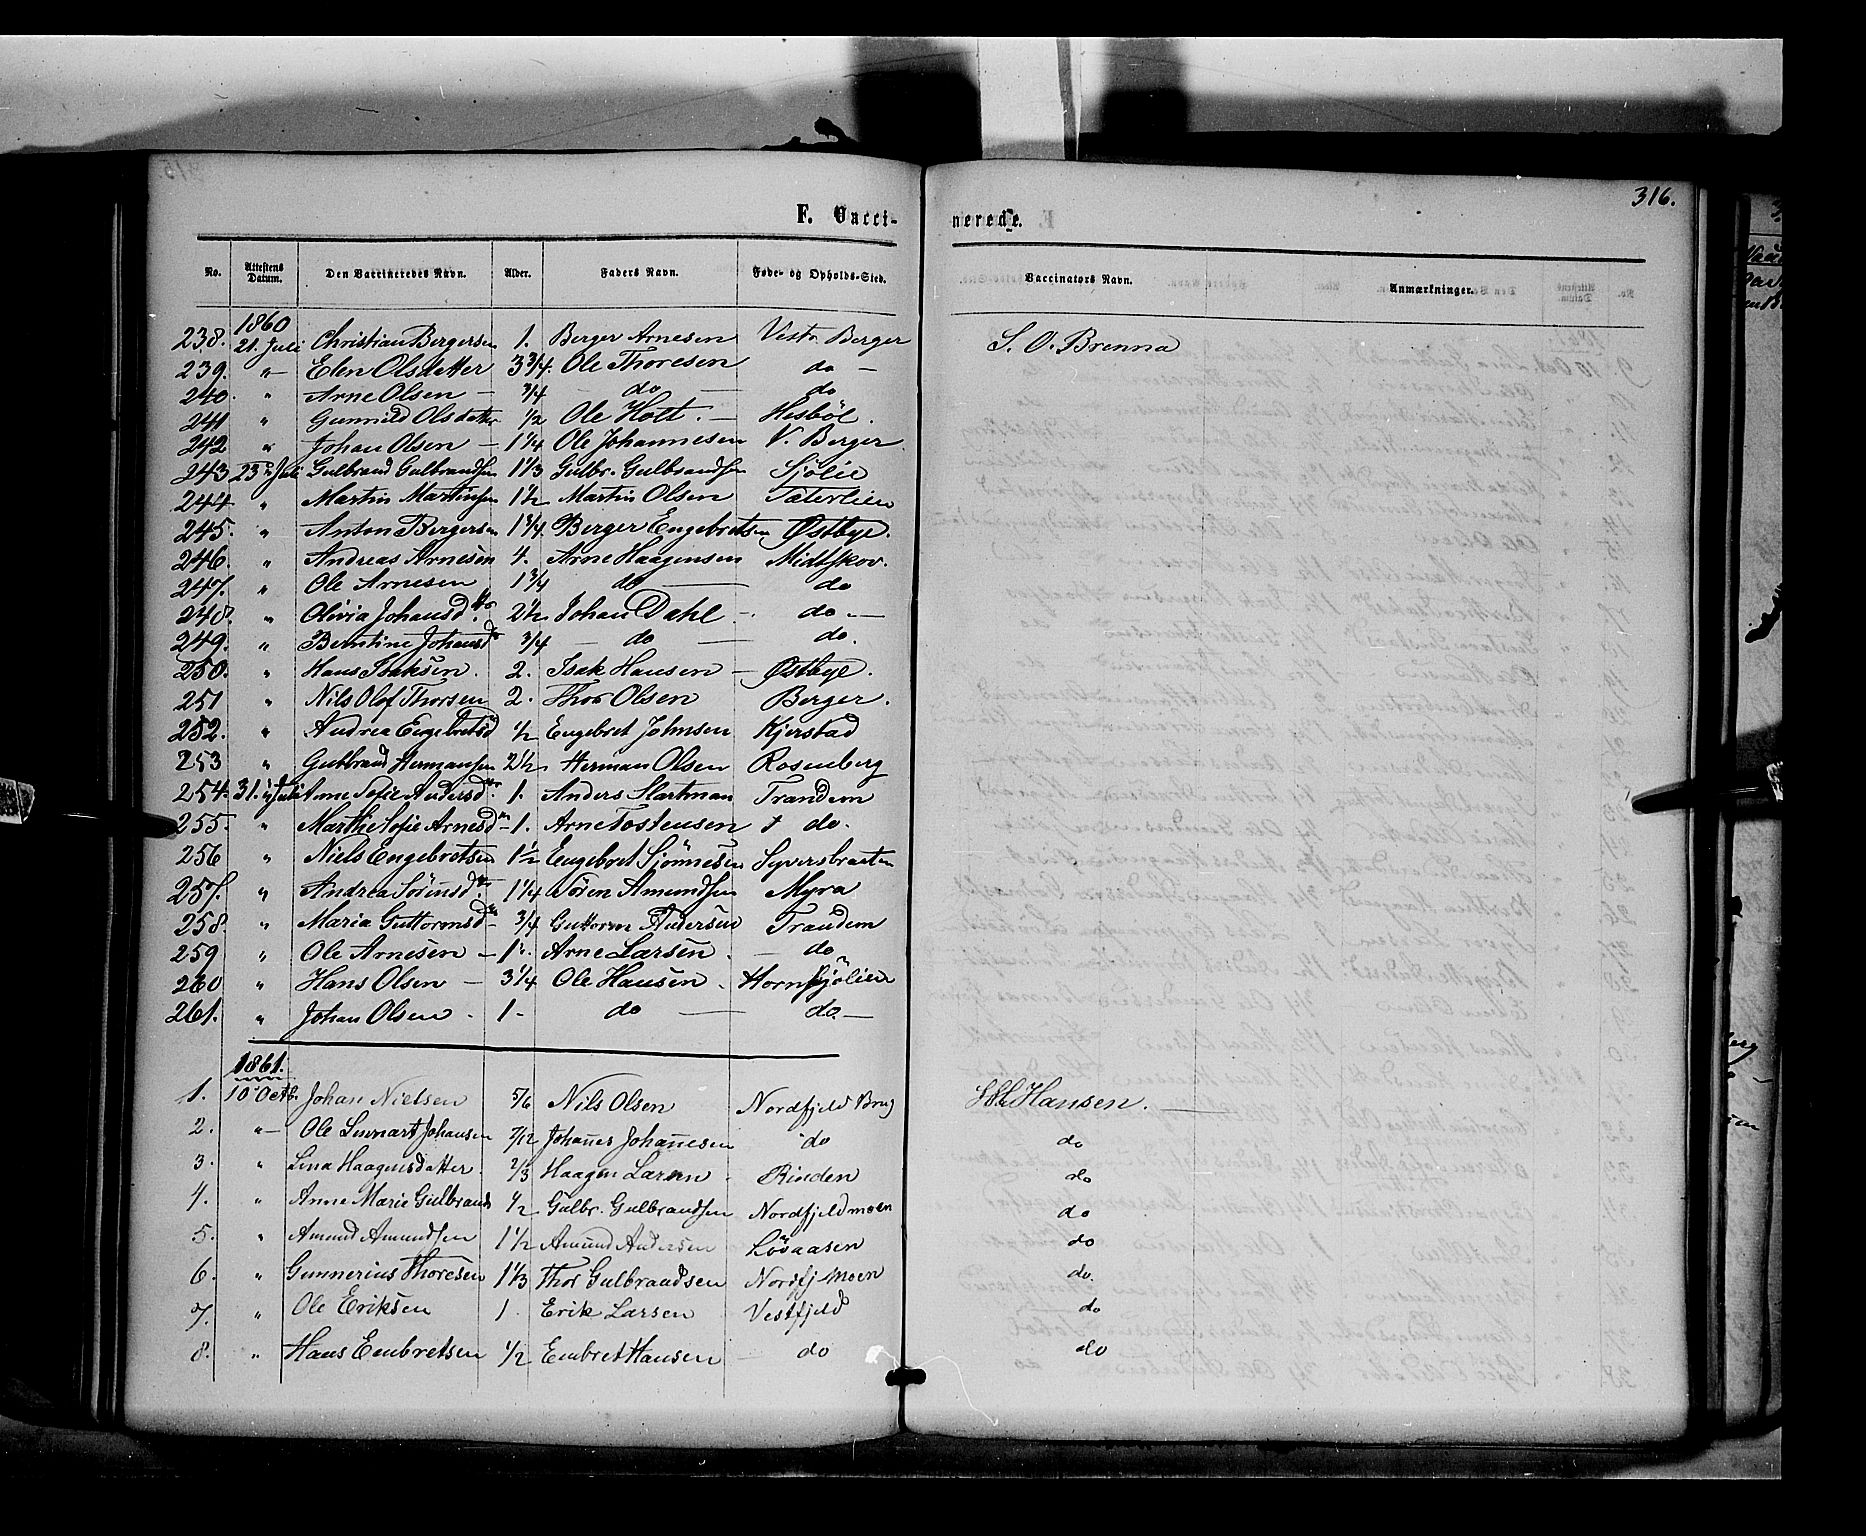 316.
F. Vacci- nerede.
No. Attestens Datum. Den Vaccineredes Navn. Alder. Faders Navn. Føde- og Opholds-Sted. Vaccinatørs Navn. Anmærkninger.
1860
238. 21. Juli Christian Bergersen 1. Berger Arnesen Vestr. Berger S. O. Brenna
239. " Elen Olsdatter 3 3/4. Ole Thoresen do
240. " Arne Olsen 3/4 do do
241 " Gunnild Olsdatter 1/2 Ole Holt. Hesböl.
242 " Johan Olsen 1 1/4 Ole Johannesen V. Berger.
243 23 Juli Gulbrand Gulbrandsen 1 1/3 Gulbr. Gulbrandsen Sjölie
244 " Martin Martinsen 1 1/2 Martin Olsen Tæterlien
245. " Anton Bergersen 1 3/4. Berger Engebretsen Østbye.
246. " Andreas Arnesen 4. Arne Haagensen Midtskov.
247. " Ole Arnesen 1 3/4 do do
248. " Olivia Johansd. 2 1/2 Johan Dahl do
249. " Berntine Johansd 3/4 do do.
250. " Hans Isaksen. 2. Isak Hansen Østbye.
251 " Nils Olof Thorsen 2. Thor Olsen Berger.
252. " Andrea Engebretsd 1/2 Engebret Johnsen Kjerstad
253 " Gulbrand Hermansen 2 1/2 Herman Olsen Rosenberg
254. 31. Juli Anne Sofie Andersd. 1. Anders Slartman Trandem
255. " Marthe Sofie Arnesd 1. Arne Tostensen do.
256 " Niels Engebretsen 1 1/2 Engebret Sjönnesen Syversbraaten
257. " Andrea Sörensd. 1 1/4 Sören Amundsen Myra
258. " Maria Guttormsd 3/4 Guttorm Andersen Trandem
259 " Ole Arnesen 1 Arne Larsen. do
260 " Hans Olsen 3 1/4 Ole Hansen Hornsjölien
261. " Johan Olsen. 1 do do.
1861.
1. 10 Octb. Johan Nielsen 5/6 Nils Olsen Nordfjeld Brug Hansen.
2. " Ole Lennart Johansen 7/12 Johañes Johañesen do do
3. " Lina Haagensdatter. 2/3 Haagen Larsen Rinden do
4. " Anne Marie Gulbrands 1/2 Gulbr. Gulbrandsen Nordfjeldmoen do
5. " Amund Amundsen 1 1/2 Amund Andersen Lövaasen do
6. " Gunnerius Thoresen 1 1/3 Thor Gulbrandsen Nordfj. Moen do.
7. " Ole Eriksen 1. Erik Larsen Vestfjeld do
8. " Hans Embretsen 1/2 Embret Hansen do do